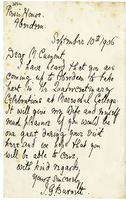 Powis House,
Aberdeen
September 10th 1906
Dear Mr Cumming
I have heard that you are
coming up to Aberdeen to take
part in the Quatercentenary
Celebrations at Marischal College.
It will give my Wife and myself
great pleasure if you would be
our guest during your visit
here and we hope that you
will be able to come,
with kind regards,
yours sincerely
J.G. Burnett